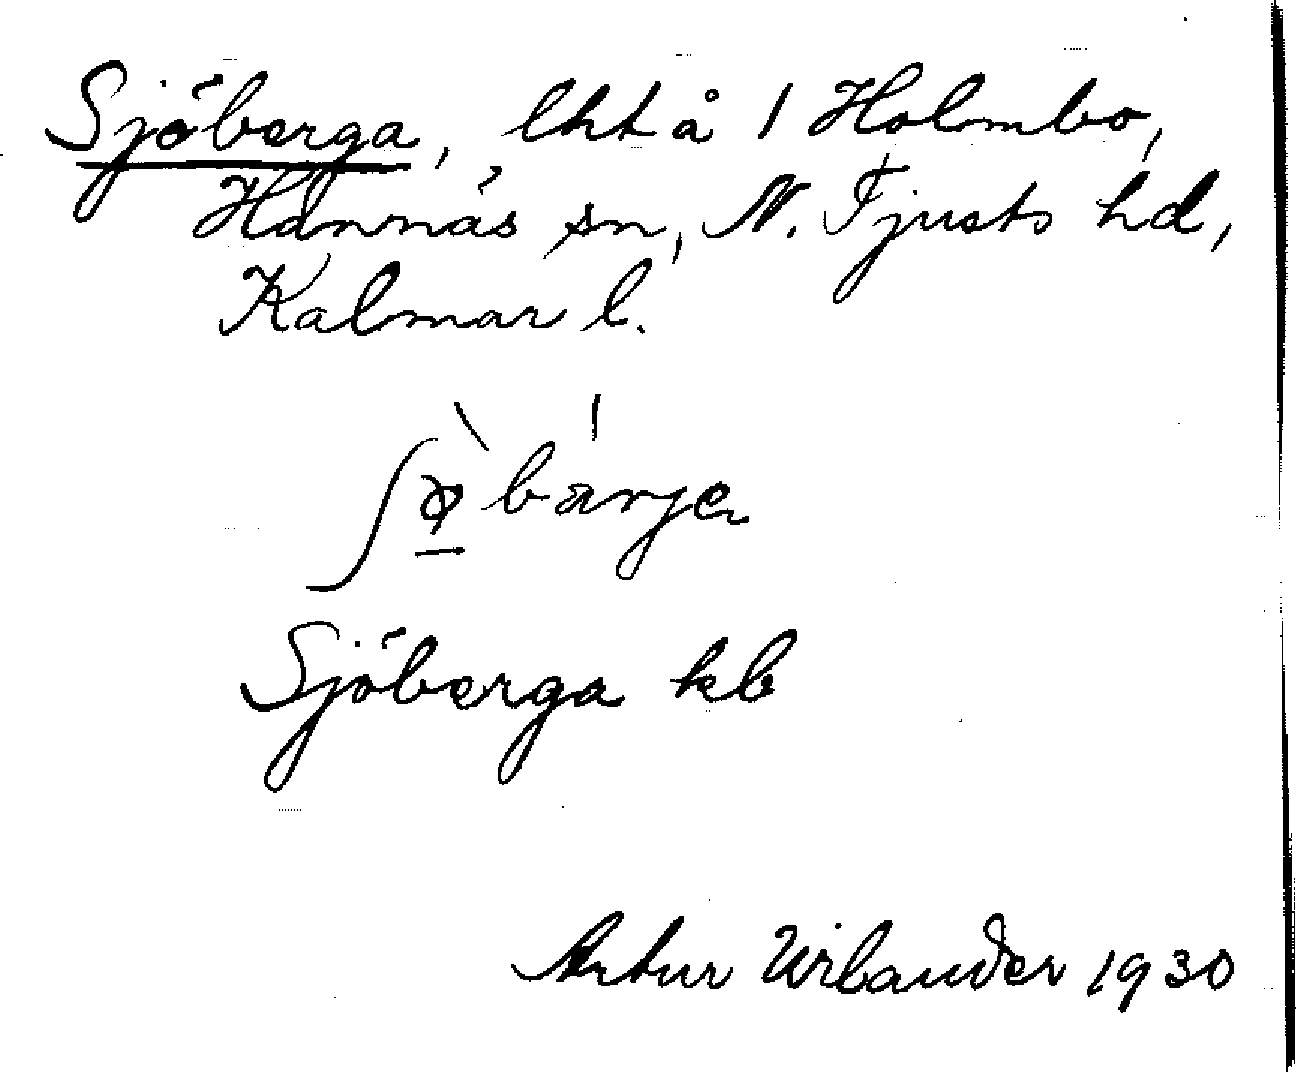 Sjöberga, lht å 1 Holmbo,
Hannäs sn, N. Tjusts hd,
Kalmar l.
Sjöberga kb
Artur Wilander 1930